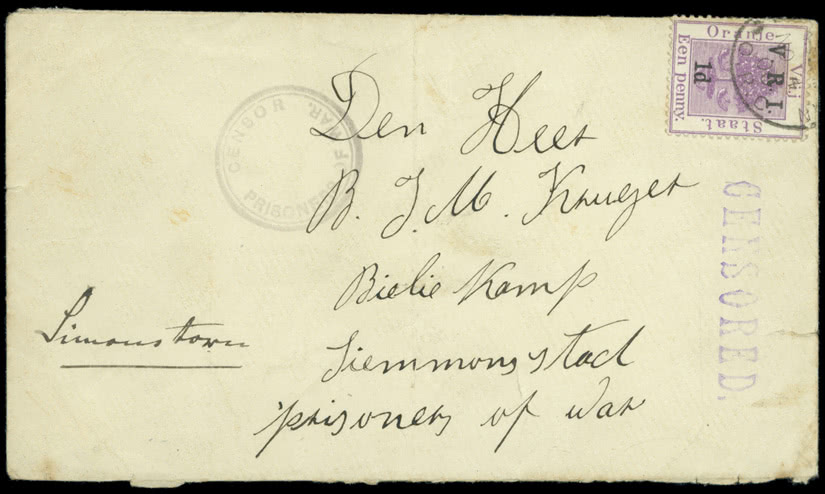 Oranje Vrij
Een penny.
Staat.
V.R.I.
1d
CENSOR
PRISONERS OF WAR.
Den Heer
B. J. M. Kruger
Bielie Kamp
Siemmonsstad
prisoners of war
Simonstown
CENSORED.